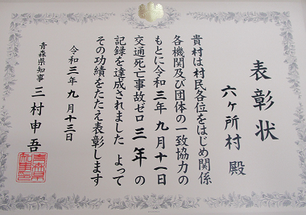 表彰状
六ヶ所村 殿
貴村は村民各位をはじめ関係
各機関及び団体の一致協力の
もとに令和三年九月十一日
交通死亡事故ゼロ三年の
記録を達成されました よって
その功績をたたえ表彰します
令和三年九月十三日
青森県知事 三村申吾